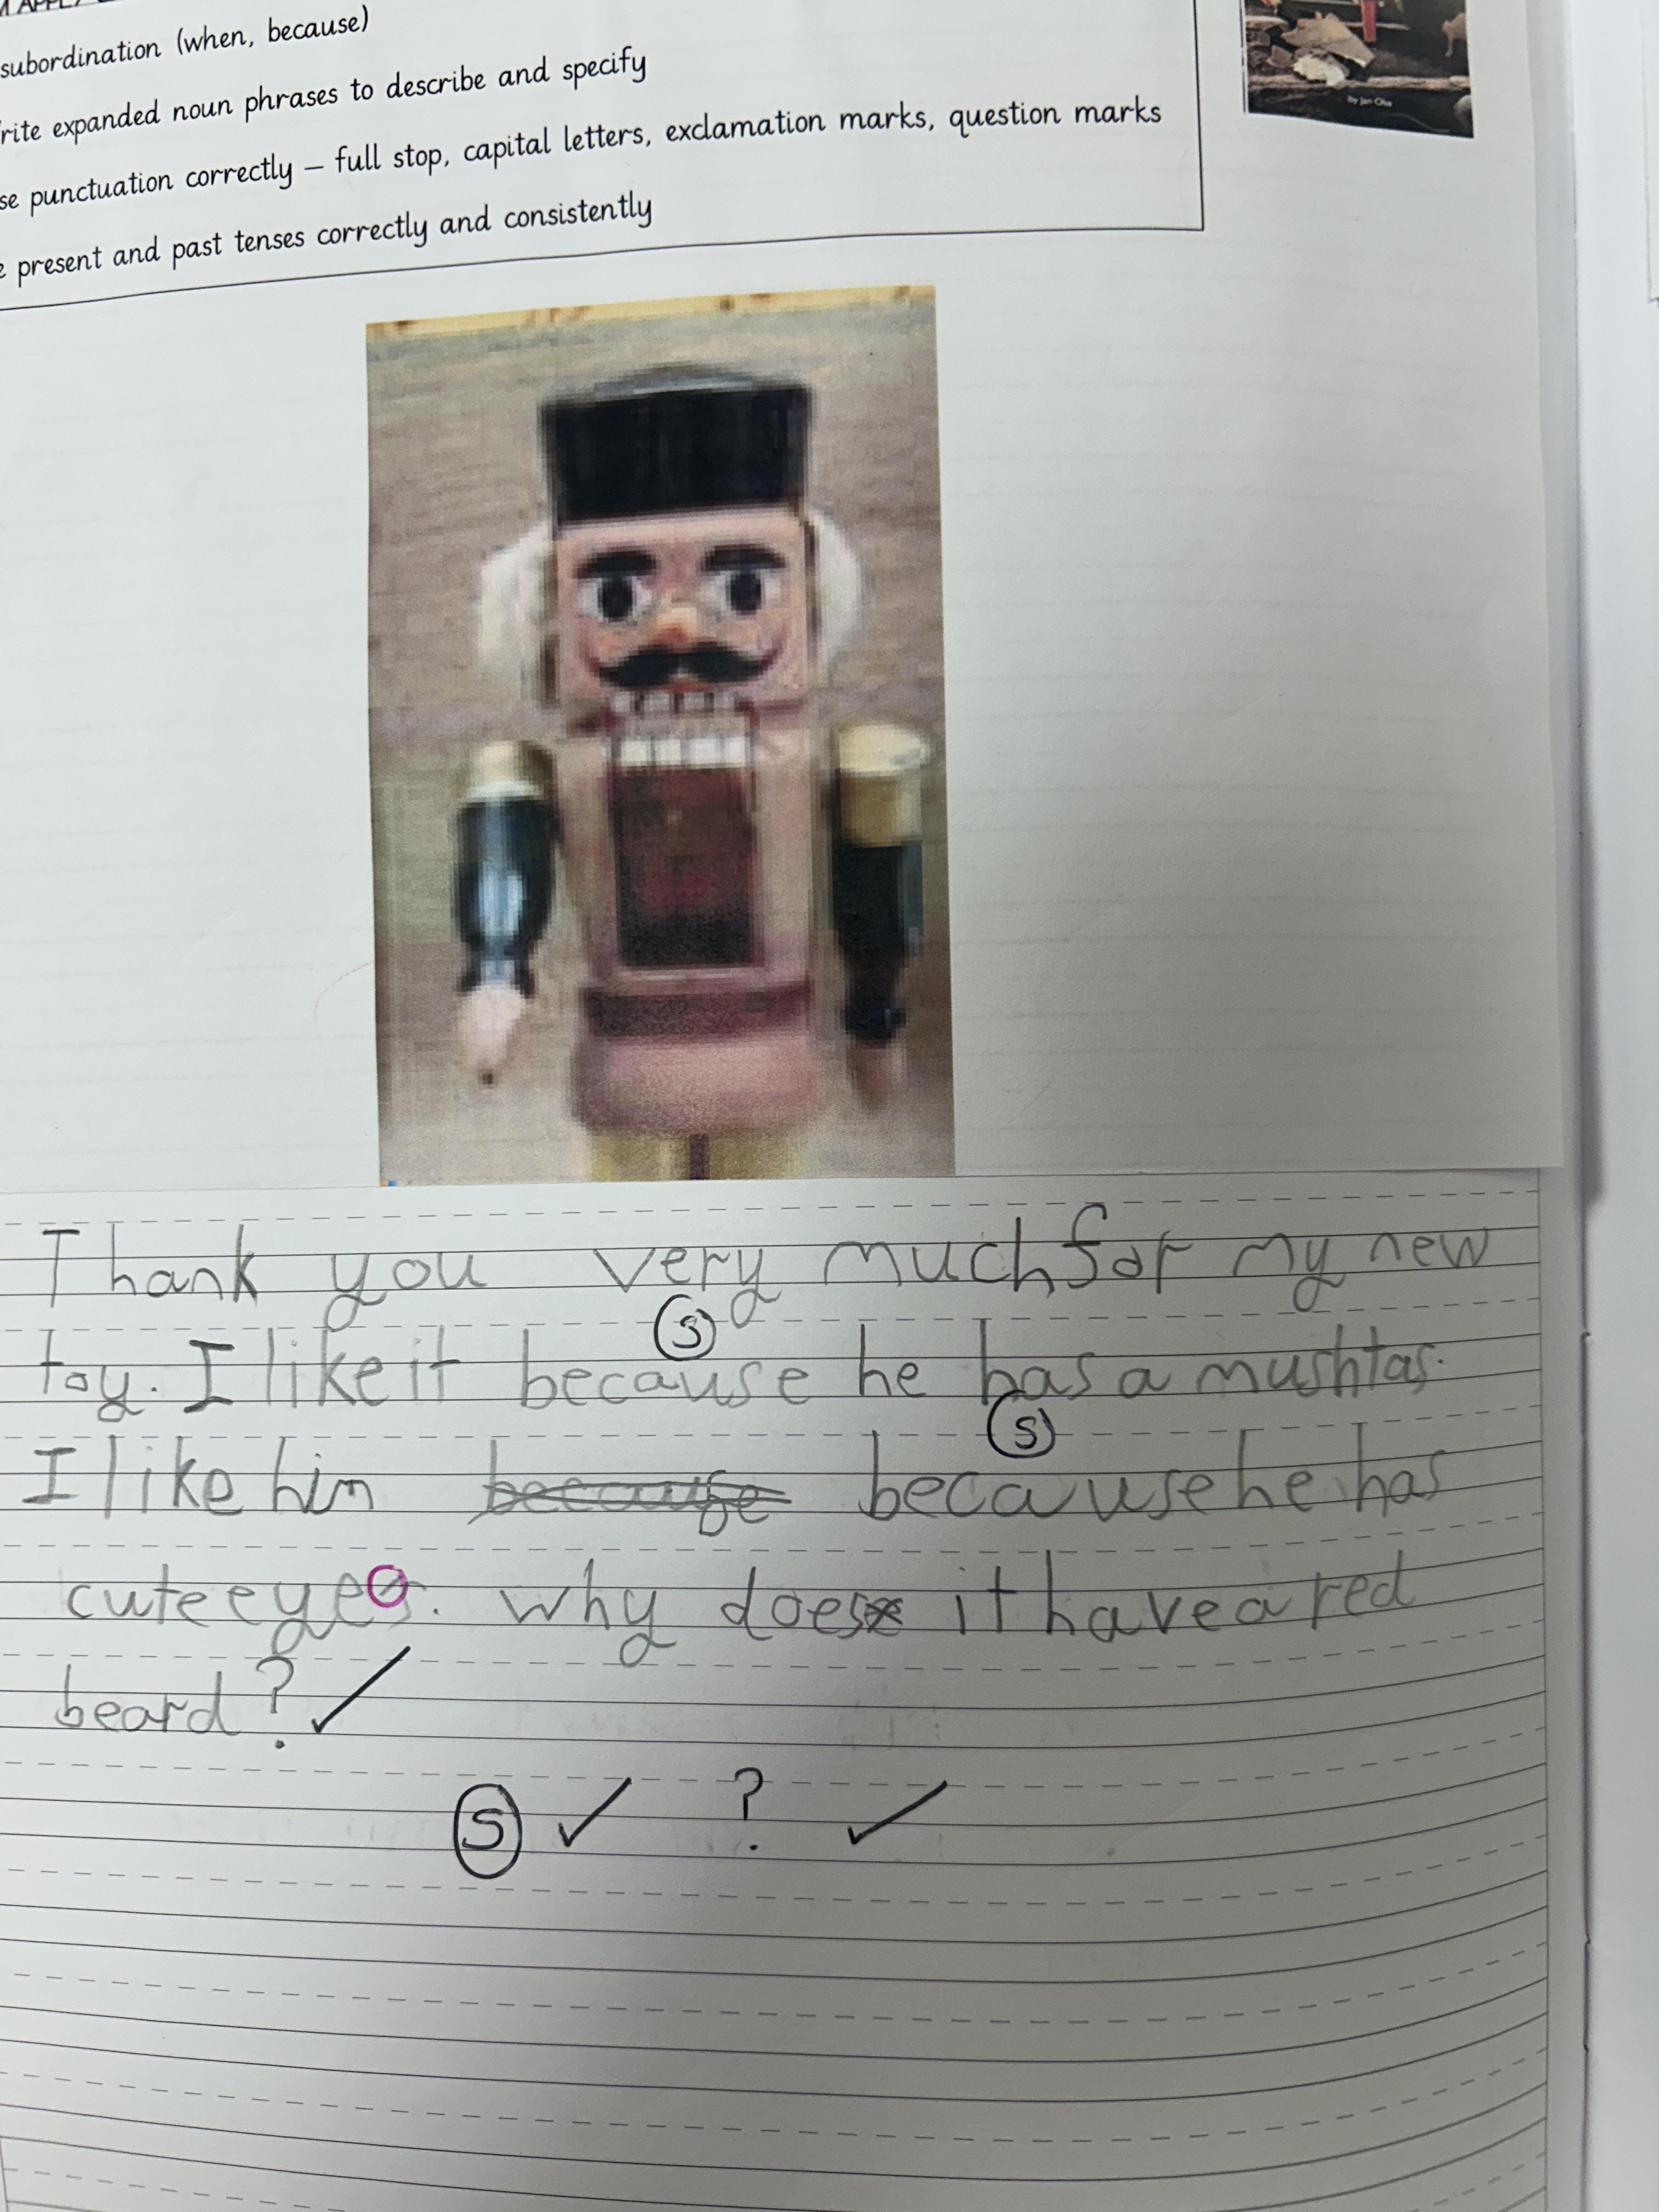 M APPL
subordination (when, because)
rite expanded noun phrases to describe and specify
se punctuation correctly – full stop, capital letters, exclamation marks, question marks
e present and past tenses correctly and consistently
by Jan Oke
Thank you very much for my new
S
toy. I like it because he has a mushtas.
S
I like him because because he has
cute eyes. why does it have a red
beard? ✓
S ✓ ? ✓